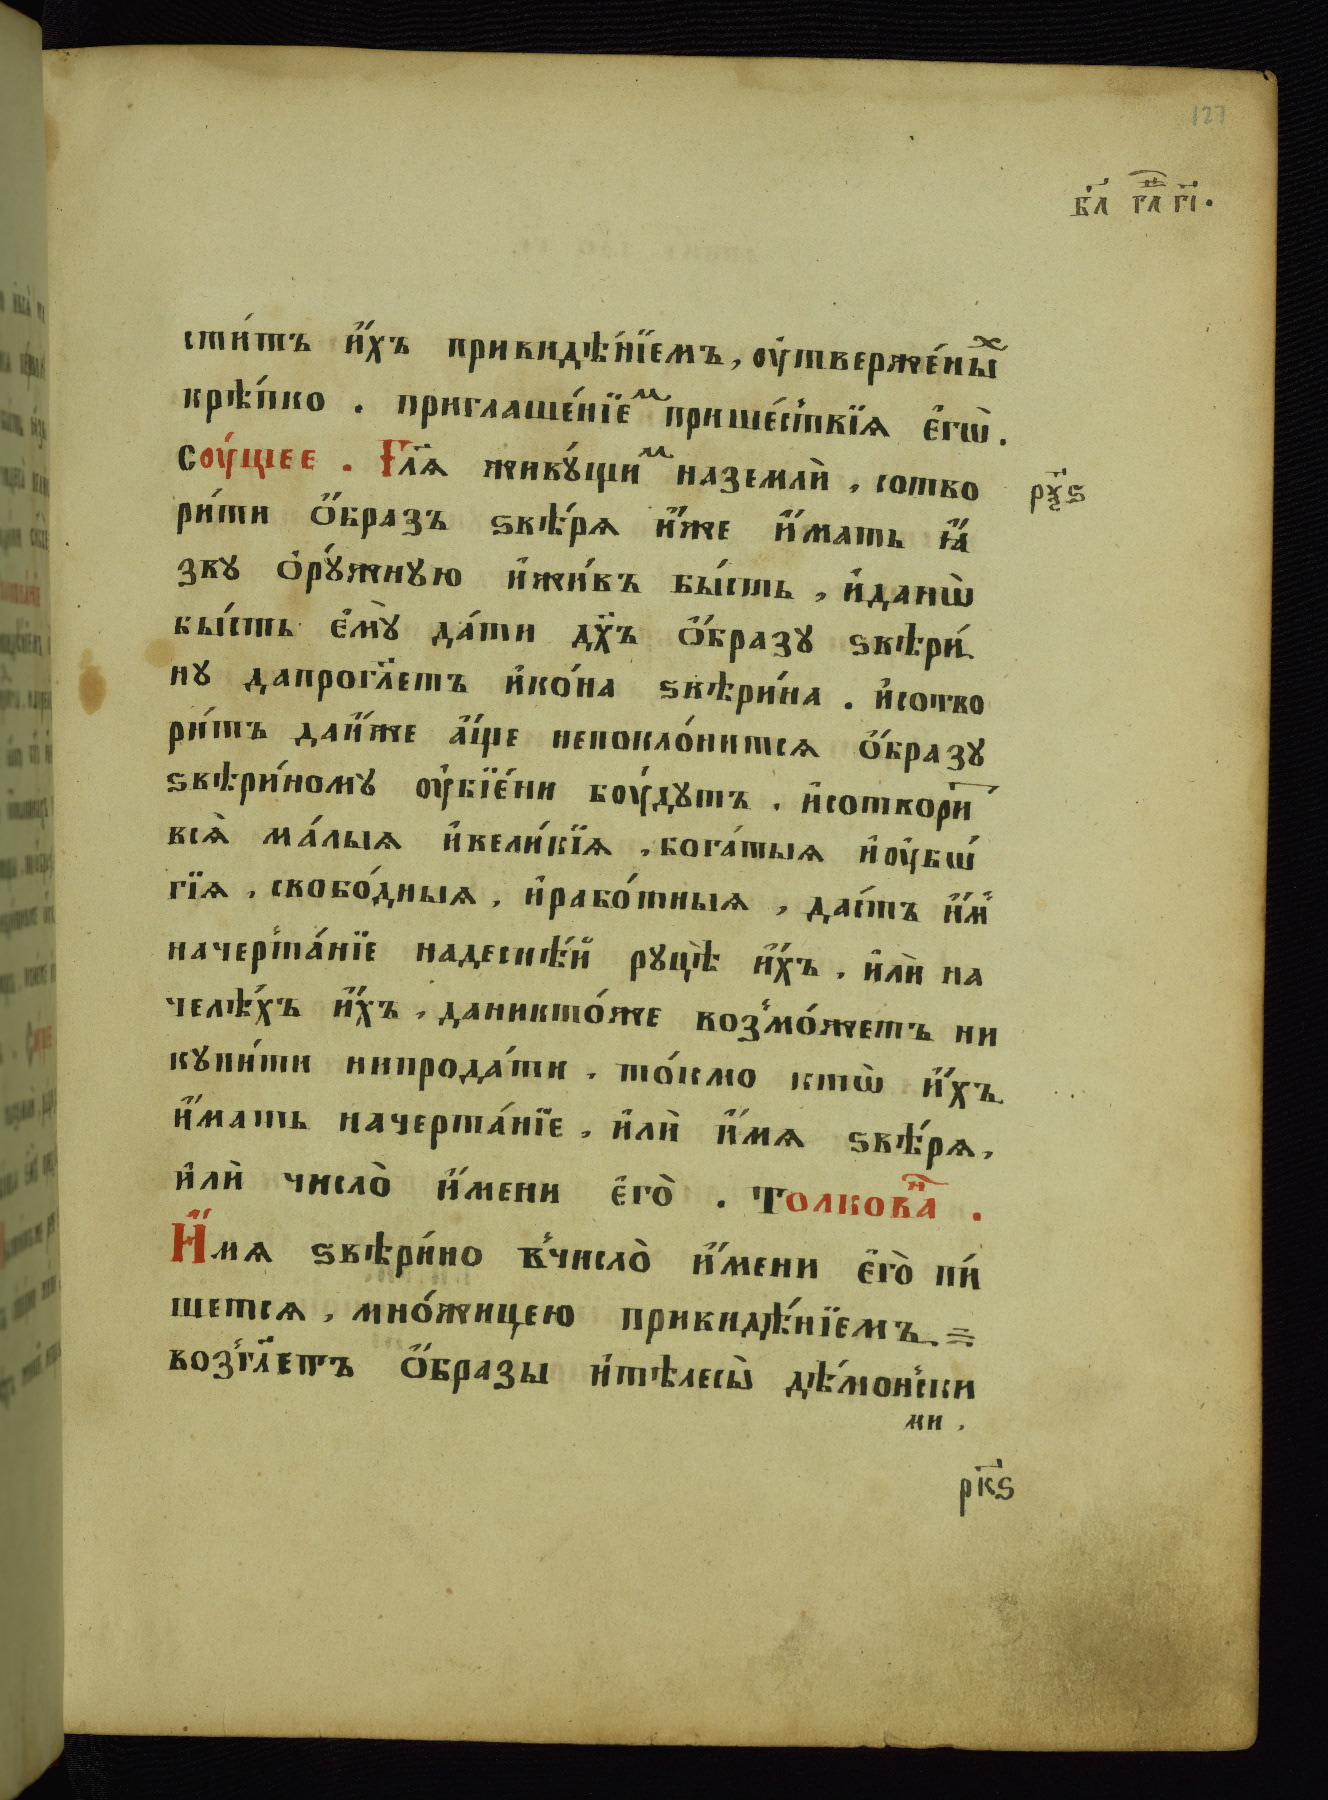 127
в҃л гл҃ г҃і.
сти́тъ и҆́хъ привидѣ́нїемъ, оу҆твержє́ныⷯ
крѣ́пко . приглаше́нїеⷨ прише́ствїѧ є҆гѡ̀.
соу́щее . Гл҃ѧ живꙋ́щиⷨ наземлѝ , сотво
ри́ти ѻ҆́бразъ ѕвѣ́рѧ и҆́же и҆́мать ꙗ҆́
звꙋ ѻ҆рꙋ́жнꙋю и҆жи́въ бы́сть , и҆данѡ̀
бы́сть є҆мꙋ̀ да́ти дх҃ъ ѻ҆́бразꙋ ѕвѣри́
нꙋ дапрогл҃етъ и҆ко́на ѕвѣри́на . и҆сотво
ри́тъ даи҆́же а҆́ще непокло́нитсѧ ѻ҆́бразꙋ
ѕвѣри́номꙋ оу҆бїе́ни бꙋ́дꙋтъ . и҆сотвори́
всѧ̀ ма́лыѧ и҆вели́кїѧ , бога́тыѧ и҆оу҆бѡ́
гїѧ , свобо́дныѧ , и҆рабо́тныѧ , да́стъ и҆́мⸯ
начерта́нїе надеснѣ́й рꙋцѣ̀ и҆́хъ . и҆лѝ на
челѣ́хъ и҆́хъ , даникто́же возмо́жетъ ни
кꙋпи́ти нипрода́ти . то́кмо ктѡ̀ и҆́хъ
и҆́мать начерта́нїе , и҆лѝ и҆́мѧ ѕвѣ́рѧ ,
и҆лѝ число̀ и҆́мени є҆го̀ . Толковаⷩ҇ .
И҆́мѧ ѕвѣри́но в̾число̀ и҆́мени є҆го̀ пи́
шетсѧ , мно́жицею привидѣ́нїемъ =
возгл҃етъ ѻ҆́бразы и҆тѣлесы̀ дѣ́монски
ми .
рꙋ҃ѕ
рк҃ѕ